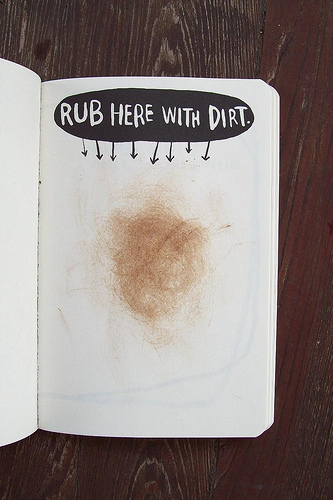 RUB HERE WITH DIRT.